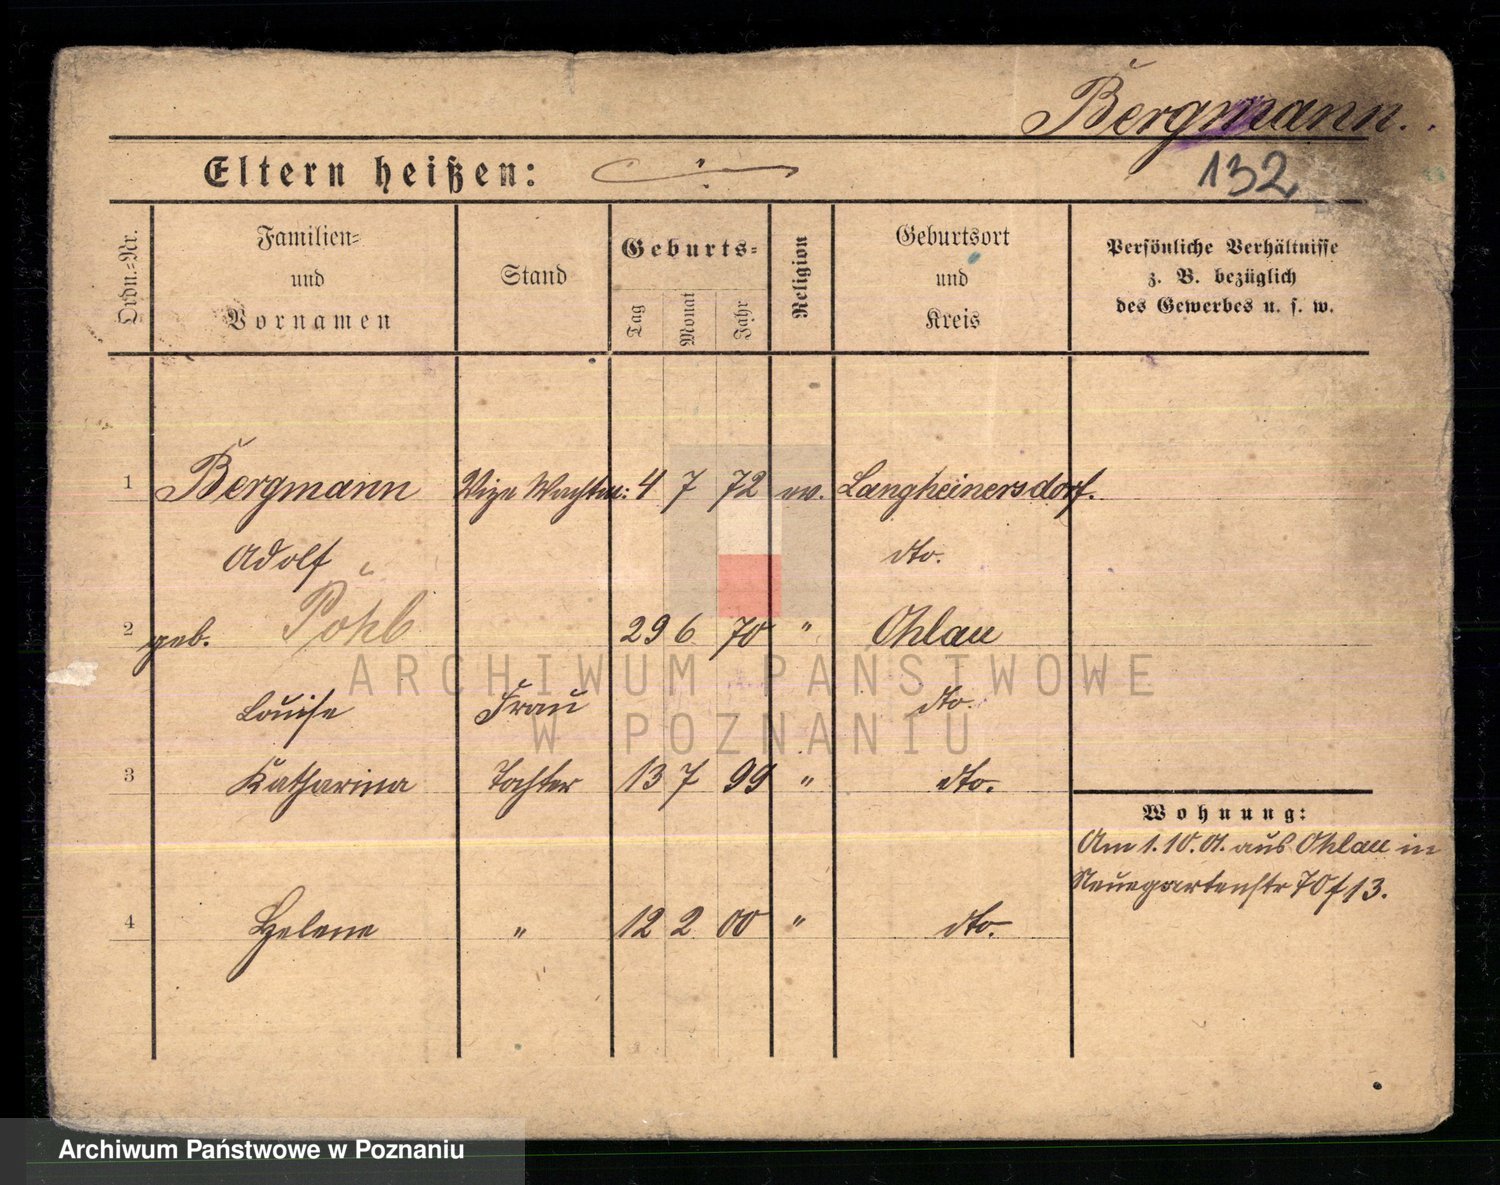 Bergmann.
Eltern heißen:
132
Ordn.=Nr.
Familien=
und
Vornamen
Stand
Geburts=
Tag
Monat
Jahr
Religion
Geburtsort
und
Kreis
Persönliche Verhältnisse
z. B. bezüglich
des Gewerbes u. s. w.
1 Bergmann Vize Wachtm: 4 7 72 ev. Langheinersdorf.
Adolf dto.
2 geb. Pohl 29 6 70 " Ohlau
Louise Frau dto.
3 Katharina Tochter 13 7 99 " dto.
Wohnung:
Am 1.10.01. aus Ohlau in
Neuegartenstr 70 f 13.
4 Helene " 12 2 00 " dto.
ARCHIWUM PAŃSTWOWE
W POZNANIU
Archiwum Państwowe w Poznaniu